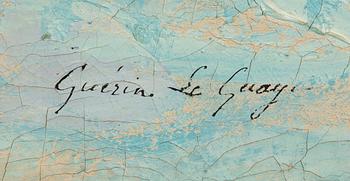 Guérin le Guay